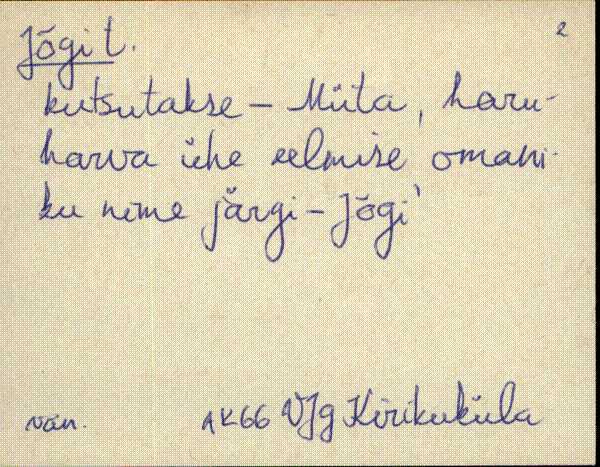 Jõgi t. 2
kutsutakse – Miita, haru-
harva ühe eelmise omani-
ku nime järgi – Jõgi'
nän. AK66 VJg Kirikuküla